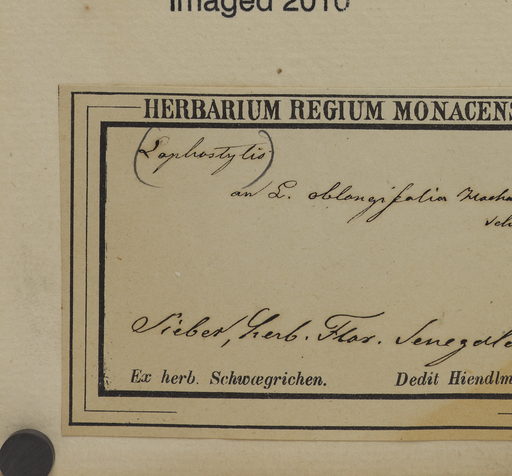 Imaged 2010
HERBARIUM REGIUM MONACENS
(Lophostylis)
an L. oblongifolia Hochs
Sieber, herb. Flor. Senegale
Ex herb. Schwægrichen.
Dedit Hiendlm